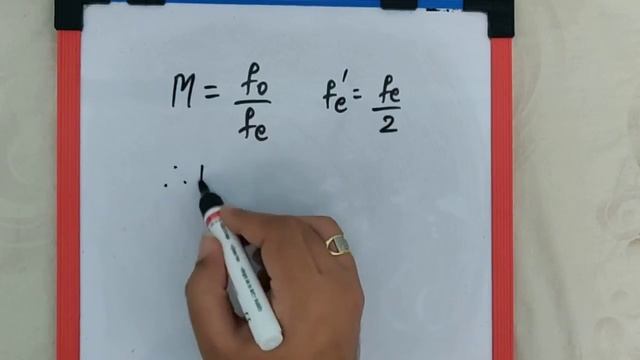 M = fo/fe    fe' = fe/2
∴